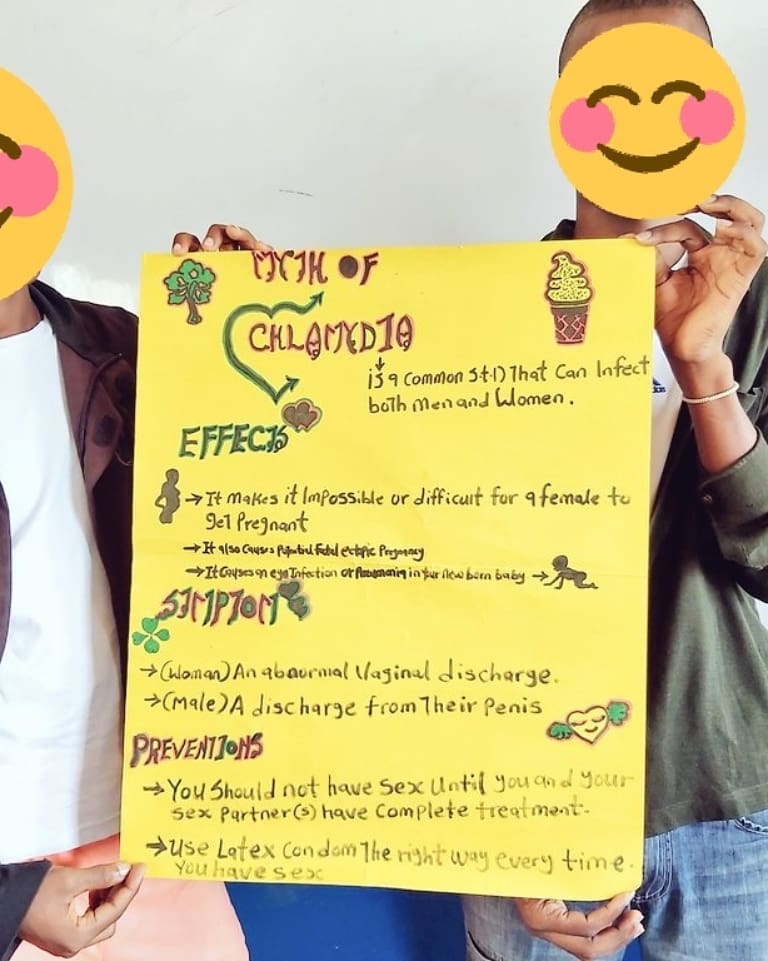 MYTH OF
CHLAMYDIA
is a common S.t.I) That Can Infect
both Men and Women.
EFFECTS
→ It makes it Impossible or difficult for a female to
get Pregnant
→ It also Causes Potential Fatal ectopic Pregnancy
→ It Causes an eye Infection or Pneumonia in Your new born baby →
SIMPTOM
→ (Woman) An abnormal Vaginal discharge.
→ (Male) A discharge from Their Penis
PREVENTIONS
→ You Should not have Sex Until you and your
sex Partner(s) have Complete treatment.
→ Use Latex Condom The right way every time.
You have sex